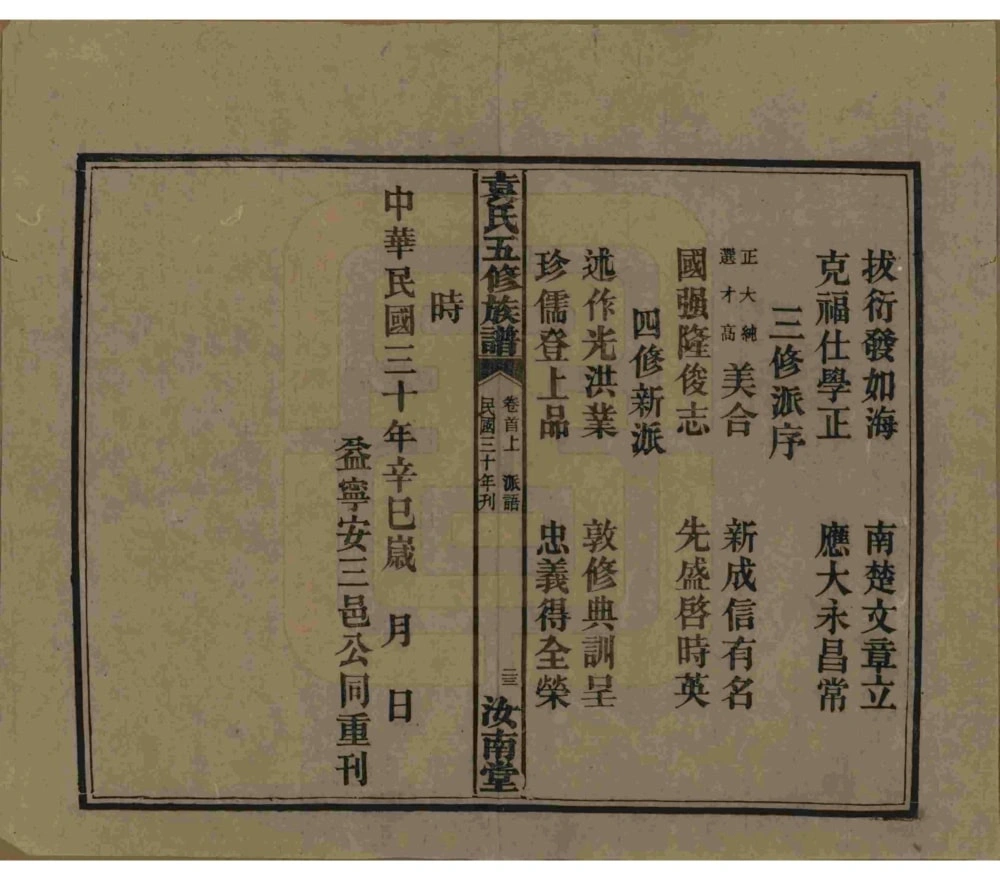 拔衍發如海　南楚文章立
克福仕學正　應大永昌常
三修派序
正大純
選才高
美合　新成信有名
國强隆俊志　先盛啓時英
四修新派
述作光洪業　敦修典訓呈
珍儒登上品　忠義得全榮
袁氏五修族譜
卷首上　派語
民國三十年刊
二三
汝南堂
時
中華民國三十年辛巳嵗　月　日
益寧安三邑公同重刊